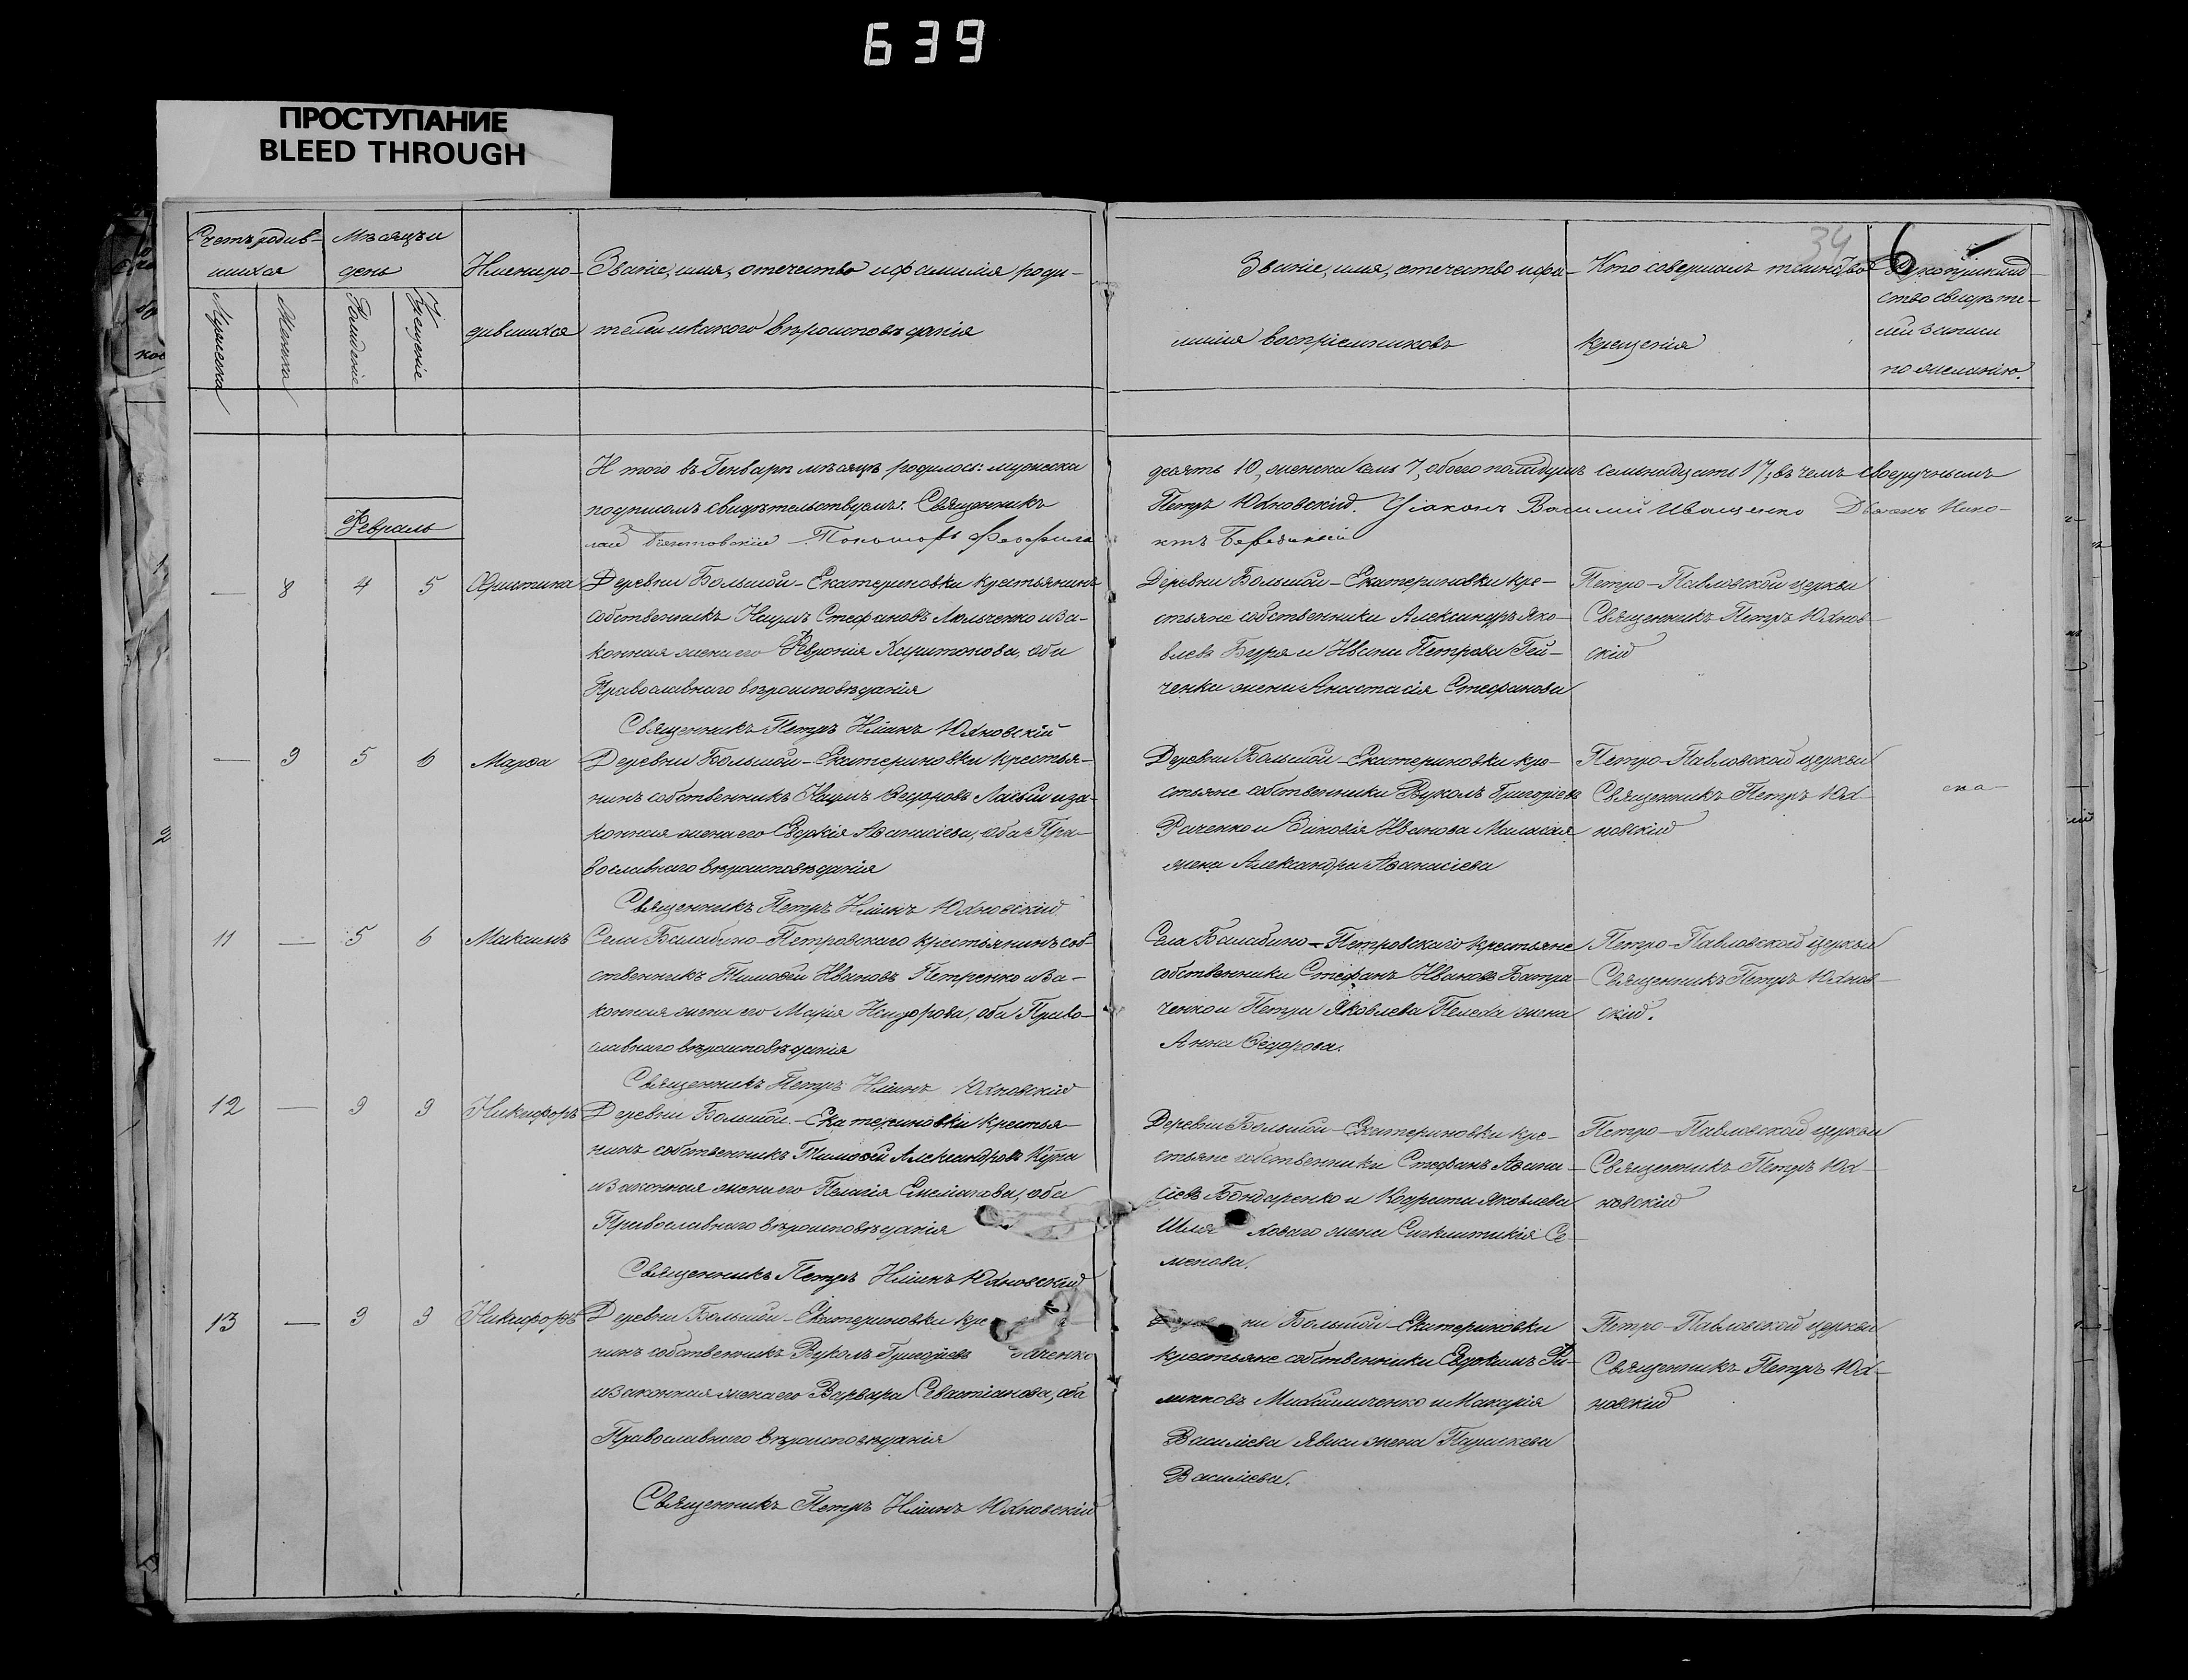 639
ПРОСТУПАНИЕ
BLEED THROUGH
34 6
Счетъ родив-
шихся
Мужеска
Женска
Мѣсяцъ и
день
Рожденіе
Крещеніе
Имена ро-
дившихся
Званіе, имя, отечество и фамилія роди-
телей и какого вѣроисповѣданія
Званіе, имя, отечество и фа-
милія воспріемниковъ
Кто совершалъ таинство
крещенія
Рукоприклад-
ство свидѣте-
лей записи
по желанію.
И того въ Генварѣ мѣсяцѣ родилось: мужеска
десять 10, женска семь 7, обоего пола душъ семьнадцать 17; въ чемъ своеручнымъ
подписомъ свидѣтельствуемъ: Священникъ
Петръ Юхновскій. Діаконъ Василій Иващенко Дьячекъ Нико-
лай Пономарь Феофила
ктъ
Февраль
— 8 4 5
Деревни Большой-Екатериновки крестьянинъ
собственникъ Наумъ Стефановъ Люльченко и за-
конная жена его Феvронія Харитонова, оба
Православнаго вѣроисповѣданія
Священникъ Петръ Юхновскій
Деревни Большой-Екатериновки кре-
стьяне собственники Александръ Яко-
влевъ Буря и Ивана Петрова Гей-
ченки жена Анастасія Стефанова
Петро-Павловской церкви
Священникъ Петръ Юхнов-
скій
— 9 5 6 Марѳа
Деревни Большой-Екатериновки крестья-
нинъ собственникъ Наумъ Ѳедоровъ и за-
конная жена его Евдокія Аѳанасіева, оба Пра-
вославнаго вѣроисповѣданія
Священникъ Петръ Юхновскій
Деревни Большой-Екатериновки кре-
стьяне собственники Вуколъ Григоріевъ
Раченко и Зиновія Иванова
жена Александра Аѳанасіева
Петро-Павловской церкви
Священникъ Петръ Юх-
новскій
11 — 5 6 Максимъ
Села Балабино-Петровскаго крестьянинъ соб-
ственникъ Тимоѳей Ивановъ Петренко и за-
конная жена его Марія Исидорова, оба Право-
славнаго вѣроисповѣданія
Священникъ Петръ Юхновскій
Села Балабино-Петровскаго крестьяне
собственники Стефанъ Ивановъ Батра-
ченко и Петра Яковлева жена
Анна Ѳедорова.
Петро-Павловской церкви
Священникъ Петръ Юхнов-
скій.
12 — 9 9 Никифоръ
Деревни Большой-Екатериновки крестья-
нинъ собственникъ Тимоѳей Александровъ Купа
и законная жена его Пелагія Емеліанова, оба
Православнаго вѣроисповѣданія
Священникъ Петръ Юхновскій
Деревни Большой-Екатериновки кре-
стьяне собственники Стефанъ Аѳана-
сіевъ Бондаренко и Кодрата Яковлева
Шля ховаго жена Сигклитикія Се-
менова.
Петро-Павловской церкви
Священникъ Петръ Юх-
новскій
13 — 9 9 Никифоръ
Деревни Большой-Екатериновки кре
нинъ собственникъ Вуколъ Григоріевъ аченко
и законная жена его Варвара Севастіанова, оба
Православнаго вѣроисповѣданія
Священникъ Петръ Юхновскій
ни Большой-Екатериновки
крестьяне собственники Евдокимъ Фи-
липповъ Михайличенко и Макарія
Василіева жена Параскева
Василіева.
Петро-Павловской церкви
Священникъ Петръ Юх-
новскій